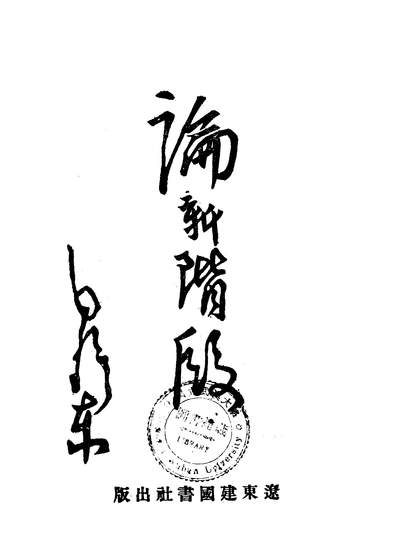 論新階段
毛澤東
遼東建國書社出版
Wuhan University
LIBRARY